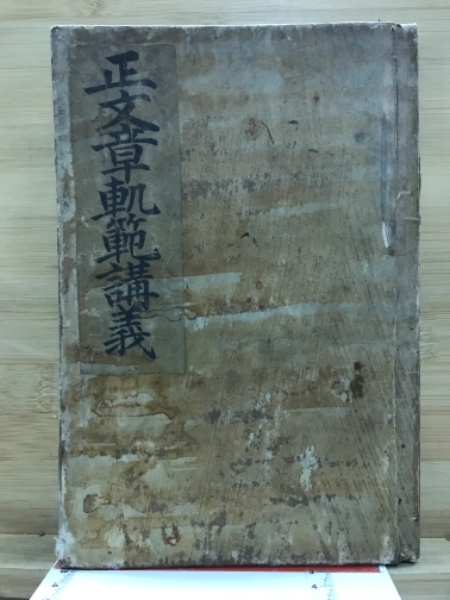 正文章軌範講義